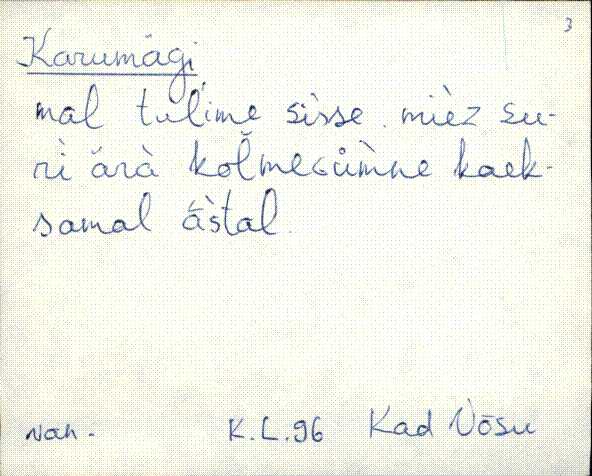 3
Karumägi
mal tul'ime sìsse. mièz su-
rì ärà kol̆mekümne kaek-
samal ā̀stal.
Nan.
K.L.96 Kad Nõsu